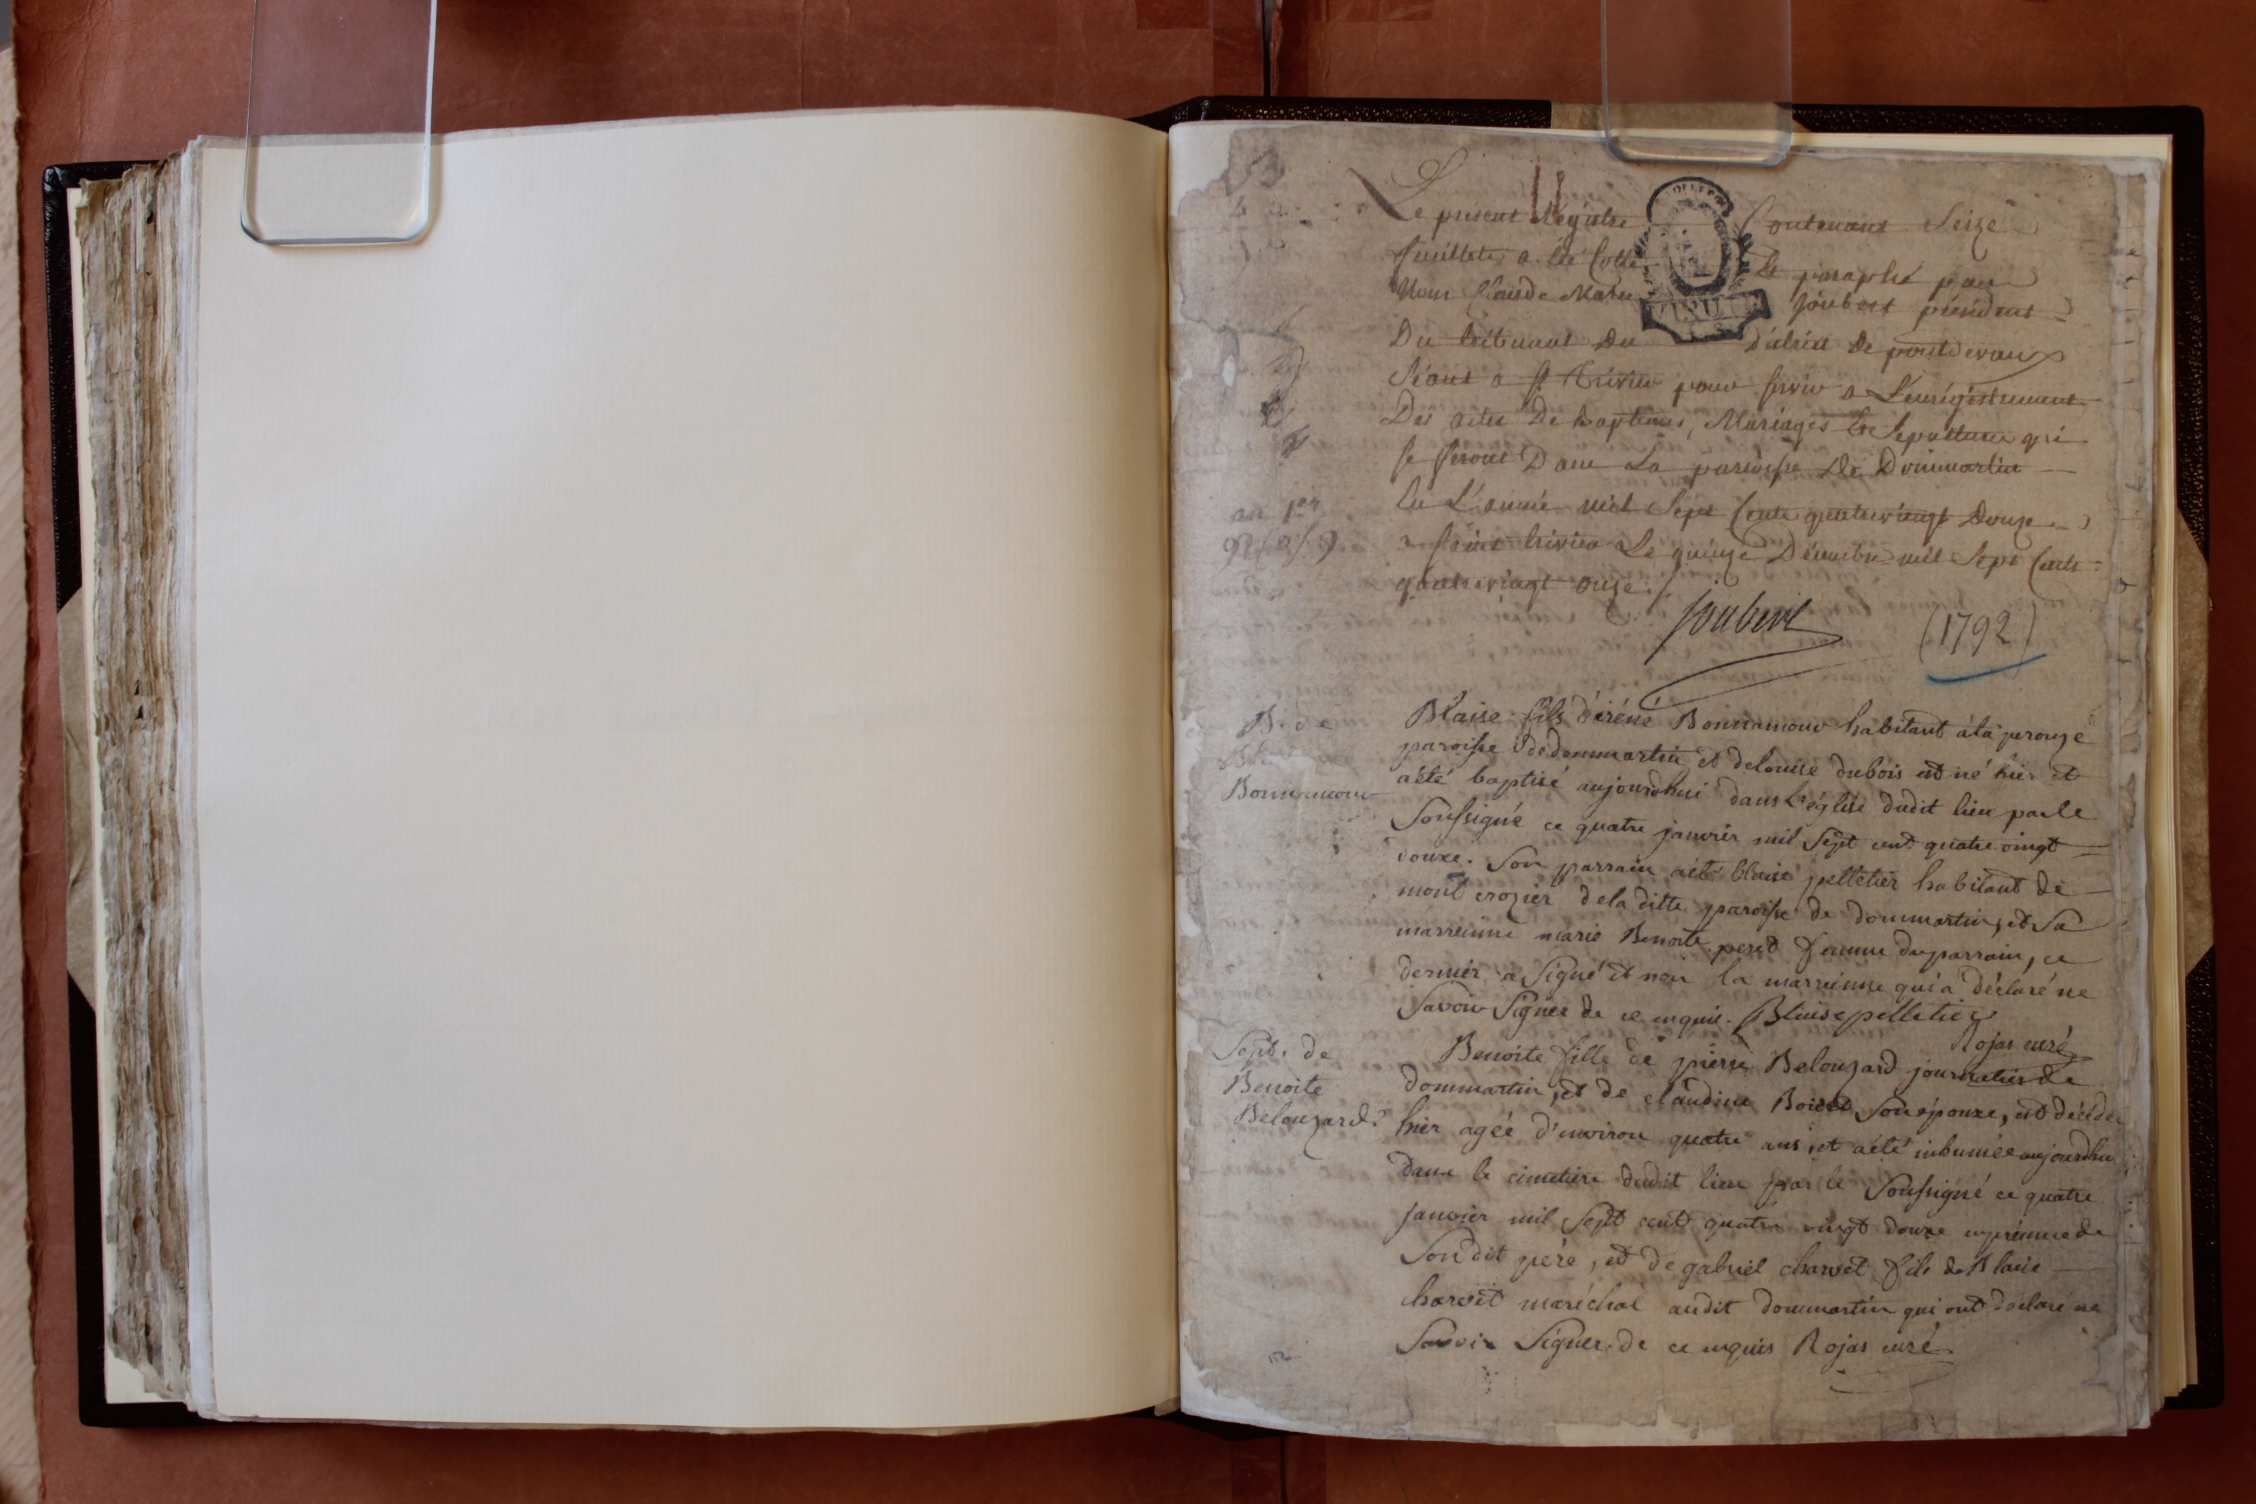 Le présent Registre Contenant Seize
feuillets a été Cotté Et paraphé par
Nous Claude Marie Joubert président
Du tribunal Du District de pontdevaux
Séant a St Trivier pour servir a L'enregistrement
Des actes De baptemes, Mariages Et Sepulture qui
se feront Dans La paroisse De Dommartin
En L'année mil Sept Cents quatrevingt Douze
a Saint trivier Le quinze Décembre mil Sept Cents
quatrevingt onze.
Joubert
(1792)
B. de
Bonnamour
Blaise fils d'iréné Bonnamour habitant à la perouze
paroisse de dommartin et de louise dubois est né hier et
a été baptisé aujourdhui dans l'église dudit lieu par le
Soussigné ce quatre janvier mil Sept cent quatre vingt
douze. Son parrain a été blaise pelletier habitant de
mont crozier de la ditte paroisse de dommartin, et Sa
marreinne marie Benoite peret femme du parrain, ce
dernier a Signé et non la marreinne qui a déclaré ne
Savoir Signer de ce enquis. Blaise pelletier
Rojas curé
Sept. de
Benoite
Belouzard
Benoite fille de pierre Belouzard journalier de
dommartin, et de claudine Boisel Son épouze, est décédée
hier agée d'environ quatre ans, et a été inhumée aujourdhui
dans le cimetiere dudit lieu par le Soussigné ce quatre
janvier mil Sept cent quatre vingt douze en présence de
Son dit pere, et de gabriel charvet fils de Blaise
charvet maréchal audit dommartin qui ont déclaré ne
Savoir Signer de ce enquis Rojas curé